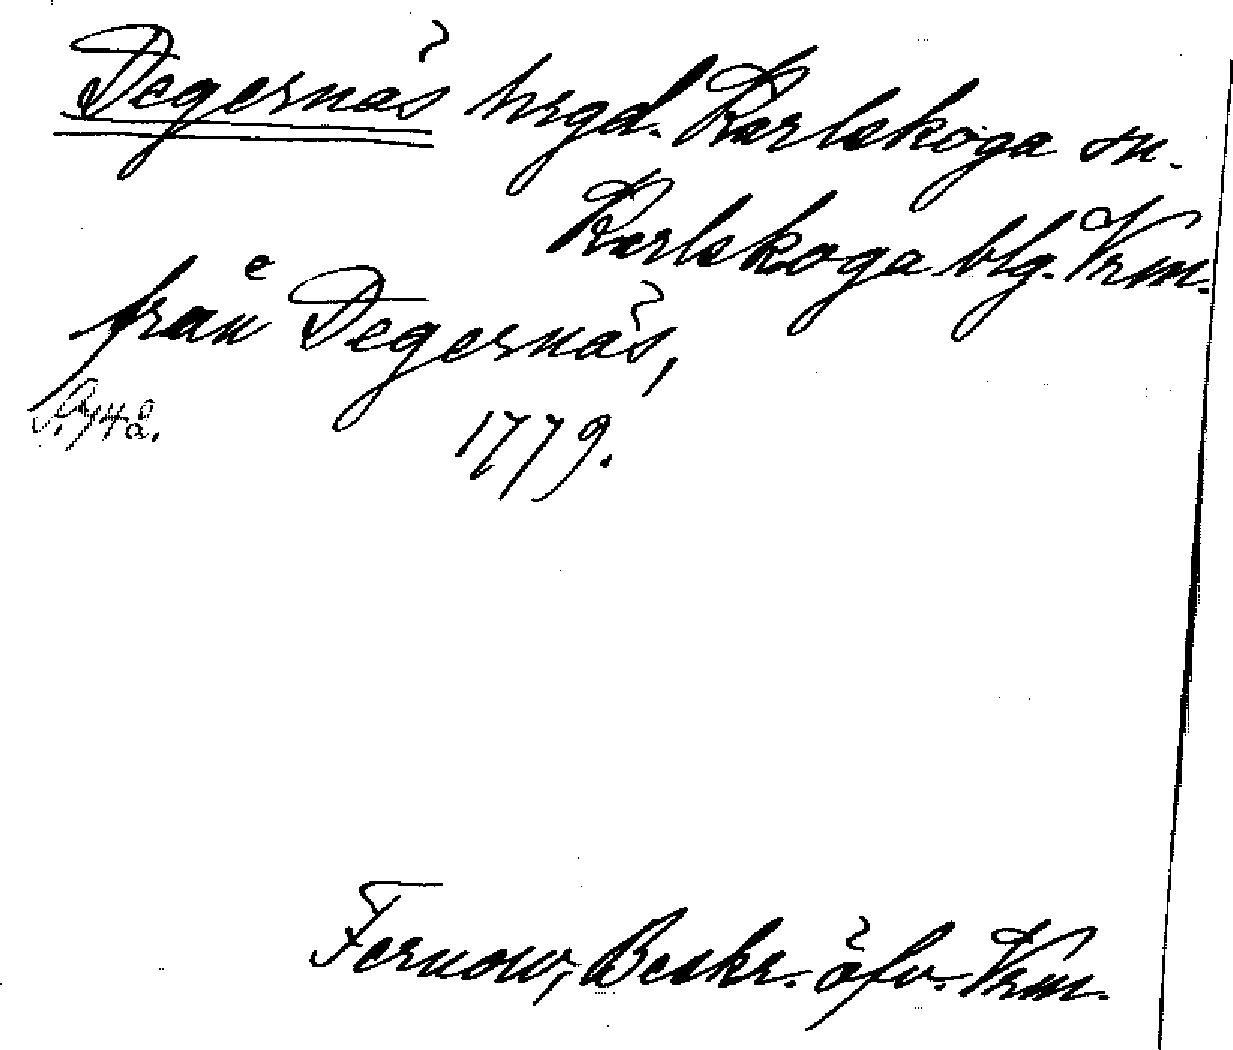 Degernäs hrgd. Karlskoga sn.
Karlskoga blg. Vrm.
från Degernäs,
S. 742.
1779.
Fernow, Beskr. öfv. Vrm.